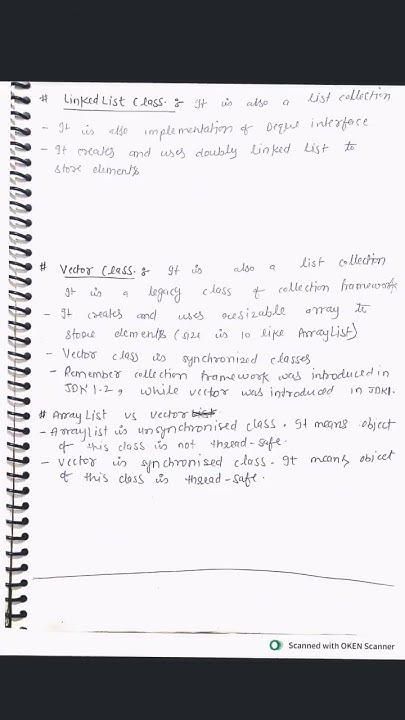 # LinkedList Class :- It is also a list collection
- It is also implementation of Deque interface
- It creates and uses doubly linked list to
store elements
# Vector Class :- It is also a list collection
It is a legacy class of collection framework
- It creates and uses resizable array to
store elements (size is 10 like ArrayList)
- Vector class is synchronized classes
- Remember collection framework was introduced in
JDK 1.2, while vector was introduced in JDK1.
# ArrayList vs Vector
- ArrayList is unsynchronised class. It means object
of this class is not thread-safe.
- Vector is synchronised class. It means object
of this class is thread-safe.
Scanned with OKEN Scanner